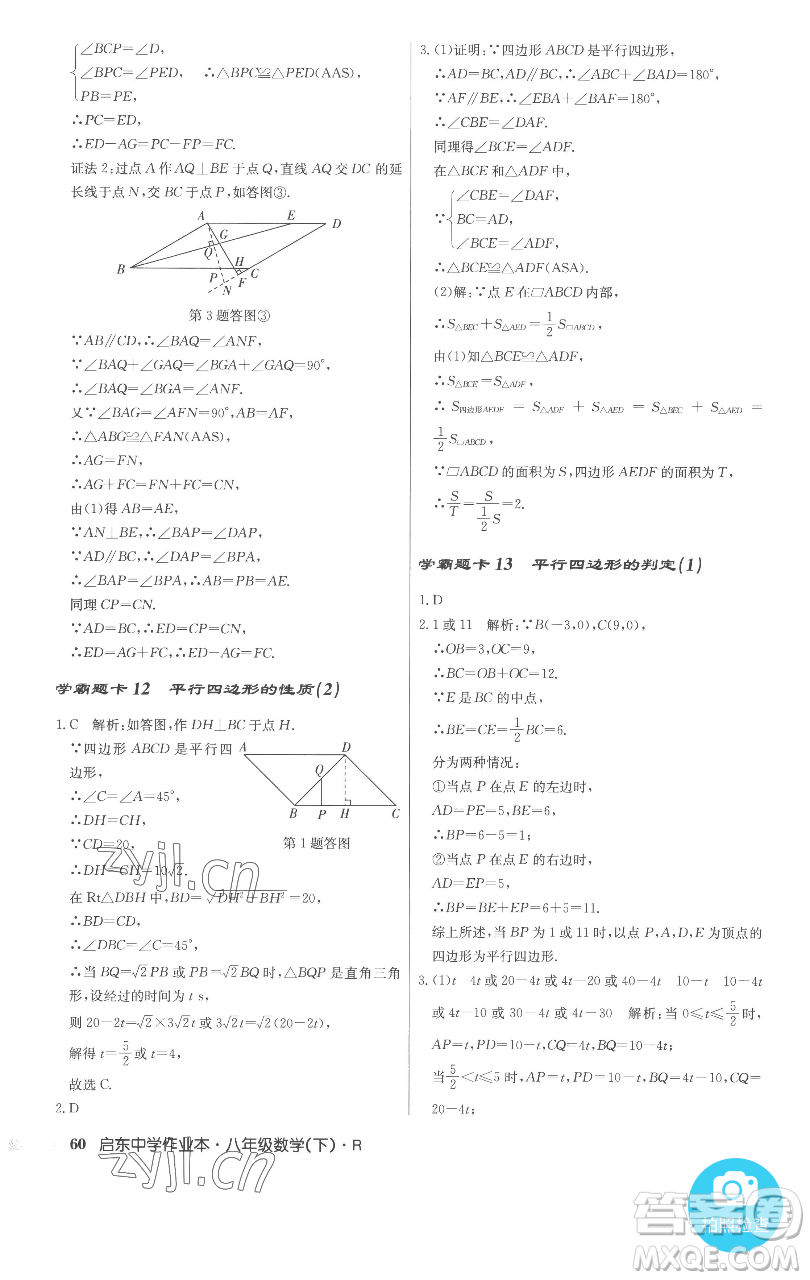 ∠BCP=∠D,
∠BPC=∠PED, ∴△BPC≌△PED(AAS),
PB=PE,
∴PC=ED,
∴ED-AG=PC-FP=FC.
证法2:过点A作AQ⊥BE于点Q,直线AQ交DC的延
长线于点N,交BC于点P,如答图③.
A E D
G
Q
B P H C
F
N
第3题答图③
∵AB∥CD,∴∠BAQ=∠ANF,
∵∠BAQ+∠ABG=∠BAG+∠ABG=90°,
∴∠BAQ=∠BGA=∠ANF.
又∵∠BAG=∠AFN=90°,AB=AF,
∴△ABG≌△FAN(AAS),
∴AG=FN,
∴AG+FC=FN+FC=CN,
由(1)得AB=AE,
∵AN⊥BE,∴∠BAP=∠DAP,
∵AD∥BC,∴∠DAP=∠BPA=∠BAP,
∴AB=BP=AE.
同理CP=CN.
∵AD=BC,∴ED=CP=CN,
∴ED=AG+FC.
学霸题卡12 平行四边形的性质(2)
1.C 解析:如答图,作DH⊥BC于点H.
∵四边形ABCD是平行四
边形,
∴∠C=∠A=45°,
∴DH=CH,
∵CD=20,
∴DH=CH=10√2.
A D
Q
B P H C
第1题答图
在Rt△DBH中,BD=√DH²+BH²=20,
∴BD=CD,
∴∠DBC=∠C=45°,
∴当BQ=√2BP或BP=√2BQ时,△BQP是直角三角
形,设经过的时间为t s,
则20-2t=√2×3√2t或3√2t=√2(20-2t),
解得t=5/2或t=4,
故选C.
2.D
3.(1)证明:∵四边形ABCD是平行四边形,
∴AD=BC,AD∥BC,∴∠ABC+∠BAD=180°,
∵AF∥BE,∴∠EBA+∠BAF=180°,
∴∠CBE=∠DAF.
同理得∠BCE=∠ADF.
在△BCE和△ADF中,
∠CBE=∠DAF,
∵ BC=AD,
∠BCE=∠ADF,
∴△BCE≌△ADF(ASA).
(2)解:∵点E在□ABCD内部,
∴S△BEC+S△AED=1/2S□ABCD,
由(1)知△BCE≌△ADF,
∴S△BCE=S△ADF,
∴S四边形AEDF = S△ADF + S△AED = S△BEC + S△AED =
1/2S□ABCD,
∵□ABCD的面积为S,四边形AEDF的面积为T,
∴S/T=S/(1/2S)=2.
学霸题卡13 平行四边形的判定(1)
1.D
2.1或11 解析:∵B(-3,0),C(9,0),
∴OB=3,OC=9,
∴BC=OB+OC=12,
∵E是BC的中点,
∴BE=CE=1/2BC=6.
分为两种情况:
①当点P在点E的左边时,
AD=PE=5,BE=6,
∴BP=6-5=1;
②当点P在点E的右边时,
AD=EP=5,
∴BP=BE+EP=6+5=11.
综上所述,当BP为1或11时,以点P,A,D,E为顶点的
四边形为平行四边形.
3.(1)t 4t或20-4t或4t-20或40-4t 10-t 10-4t
或4t-10或30-4t或4t-30 解析:当0≤t≤5/2时,
AP=t,PD=10-t,CQ=4t,BQ=10-4t;
当5/2<t≤5时,AP=t,PD=10-t,CQ=4t-10,BQ=
20-4t;
60 启东中学作业本·八年级数学(下)·R
zyjl.cn
zyjl.cn
答案卷
拍照检查
MXQE.COM